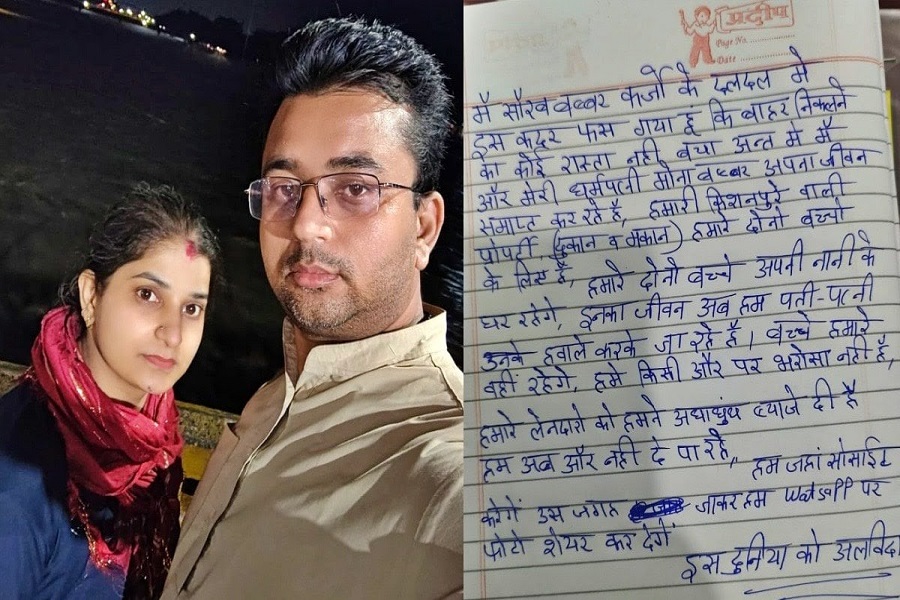 प्रदीप
Page No.
Date
मै सौरव बब्बर कर्जो के दलदल मे
इस कदर फस गया हूं कि बाहर निकलने
का कोई रास्ता नही बचा अन्त मे मैं
और मेरी धर्मपत्नी मोना बब्बर अपना जीवन
समाप्त कर रहे है, हमारी किशनपुरे वाली
प्रोपर्टी, (दुकान व मकान) हमारे दोनो बच्चो
के लिए है, हमारे दोनो बच्चे अपनी नानी के
घर रहेगे, इनका जीवन अब हम पती-पत्नी
उनके हवाले करके जा रहे है। बच्चे हमारे
वही रहेगे, हमे किसी और पर भरोसा नही है,
हमारे लेनदारो को हमने अंधाधुंध ब्याजे दी है
हम अब और नही दे पा रहे, हम जहां सोसाईट
करेगें उस जगह जाकर हम watsapp पर
फोटो शेयर कर देगें
इस दुनिया को अलविदा